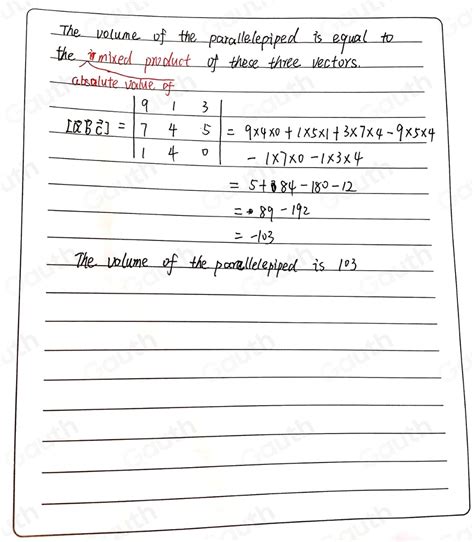 The volume of the parallelepiped is equal to
the mixed product of these three vectors.
absolute value of
9 1 3
[a⃗ b⃗ c⃗] = 7 4 5 = 9×4×0 + 1×5×1 + 3×7×4 - 9×5×4
1 4 0 - 1×7×0 - 1×3×4
= 5 + 84 - 180 - 12
= 89 - 192
= -103
The volume of the parallelepiped is 103